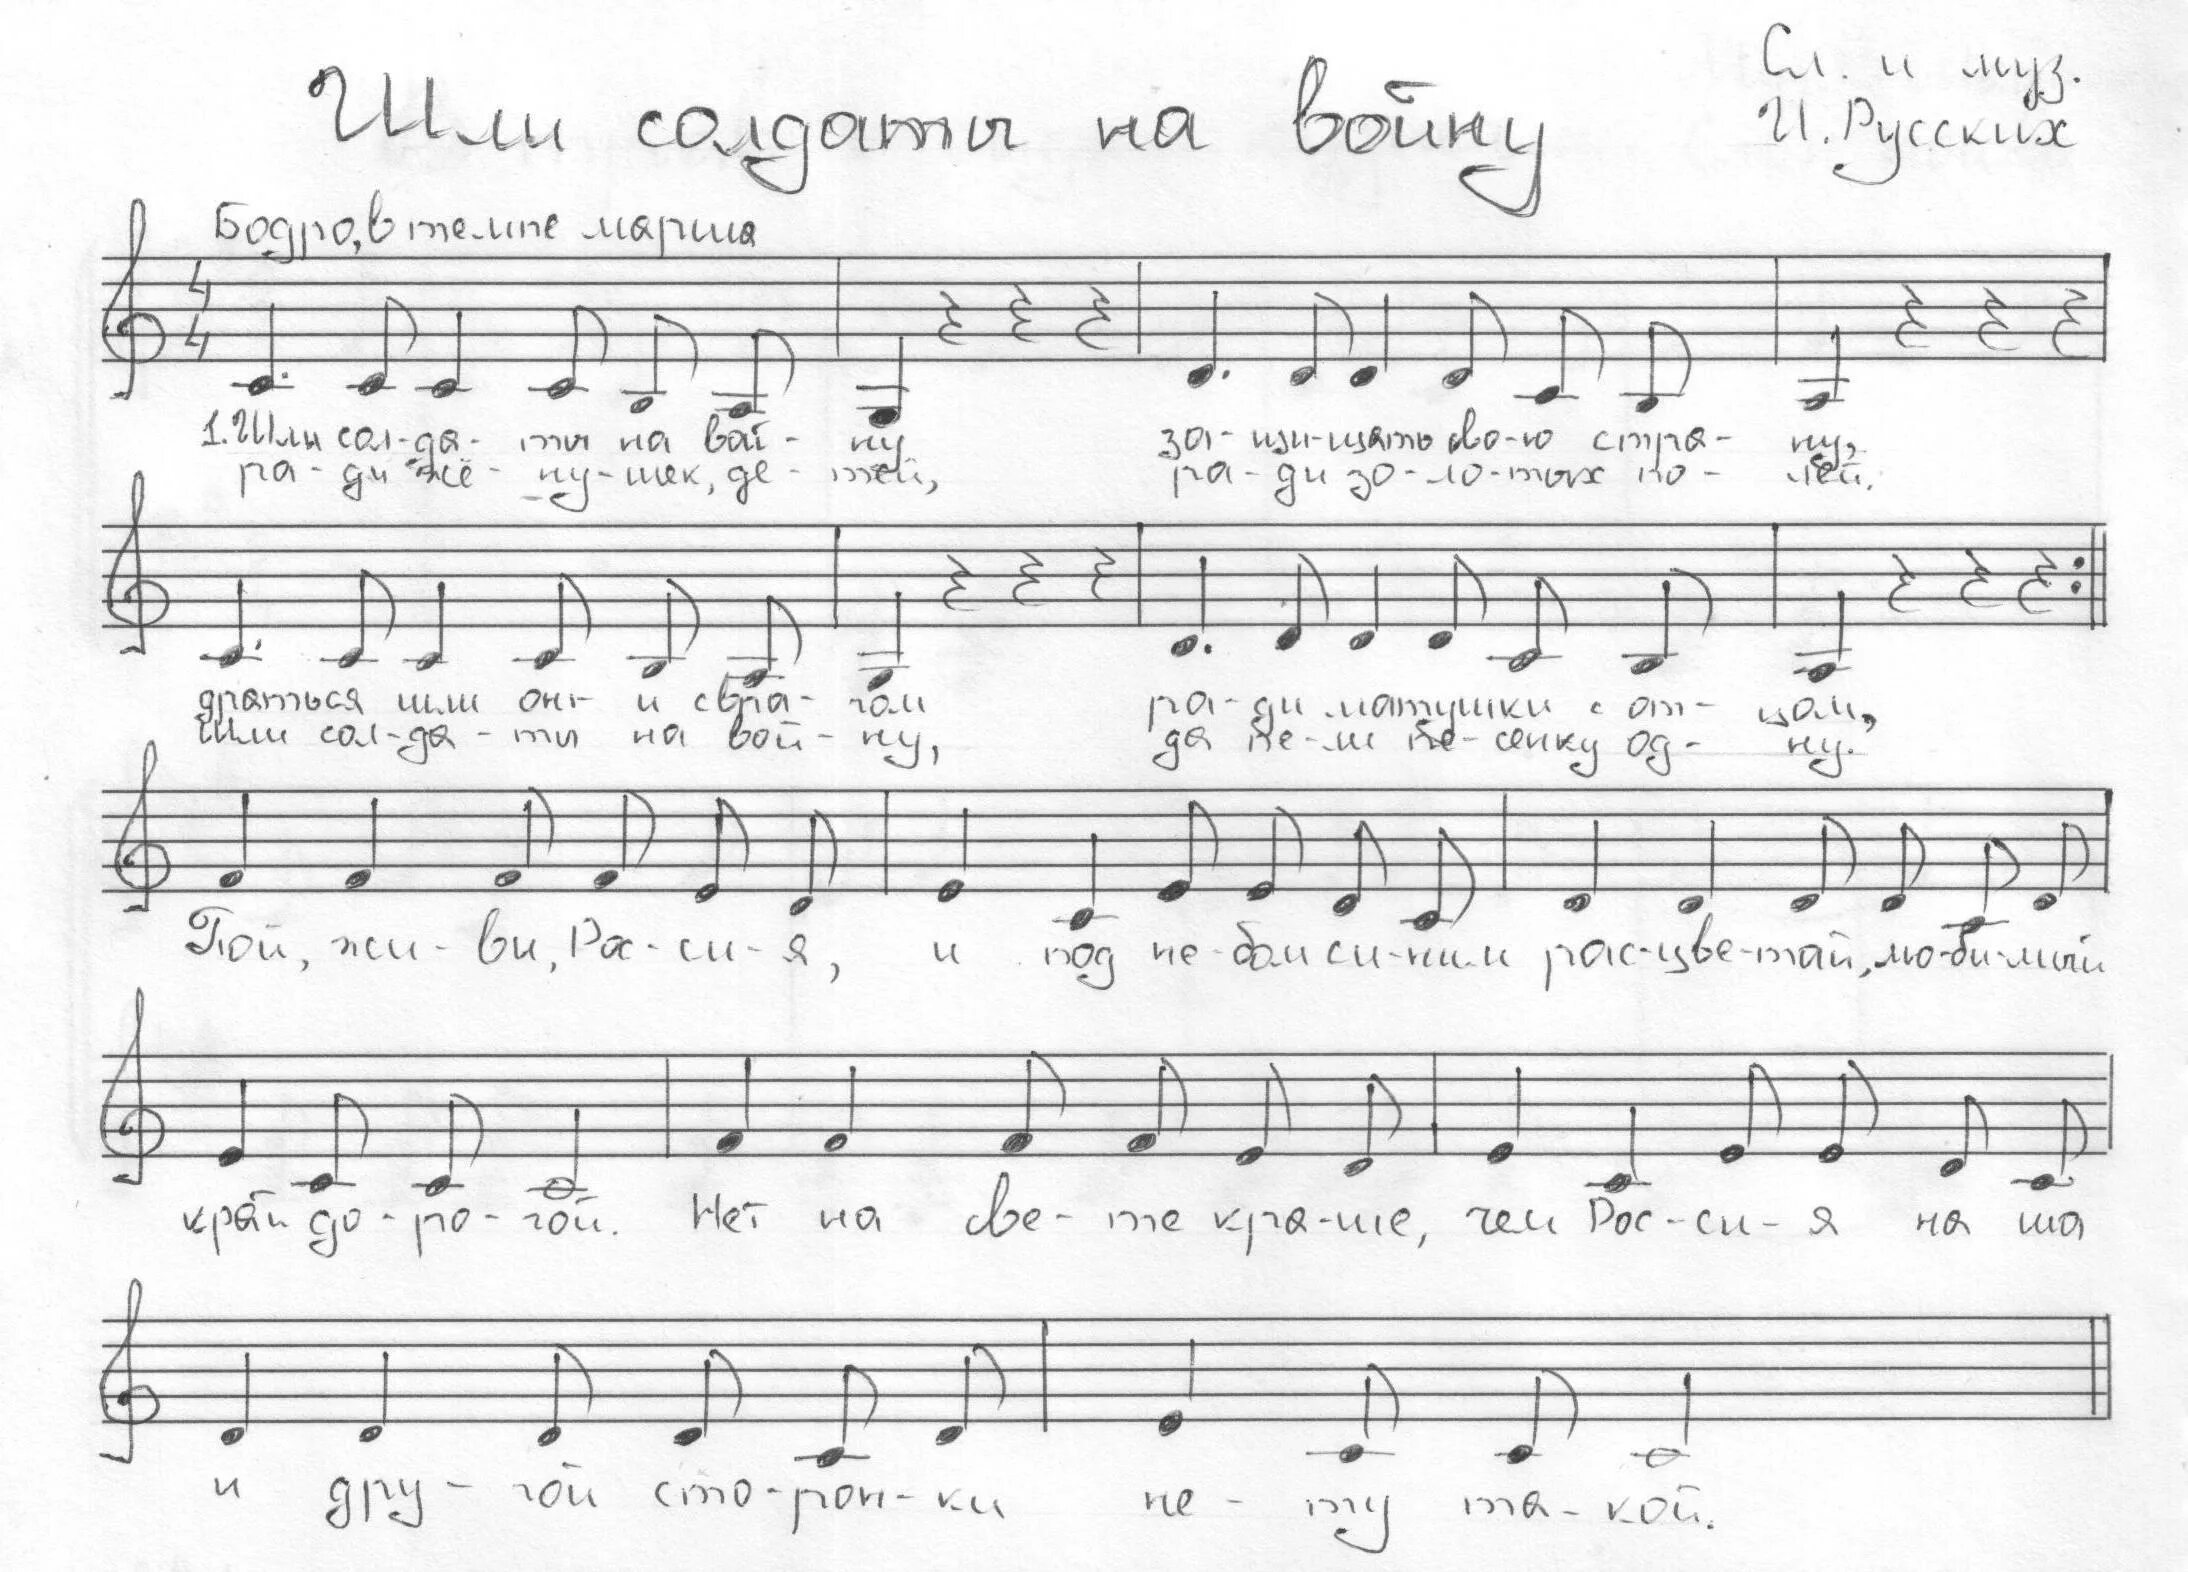 Шли солдаты на войну
Сл. и муз.
И. Русских
Бодро, в темпе марша
4
4
1. Шли сол-да-ты на вой-ну за-щи-щать сво-ю стра-ну,
ра-ди жё-ну-шек, де-тей, ра-ди зо-ло-тых по-лей.
драться шли они и с вра-гом ра-ди матушки с от-цом,
Шли сол-да-ты на вой-ну, да пе-ли пе-сенку од-ну.
Пой, жи-ви, Рос-си-я, и под не-бом си-ним рас-цве-тай, лю-би-мый
край до-ро-гой. Нет на све-те кра-ше, чем Рос-си-я на ша
и дру-гой сто-рон-ки не-ту та-кой.